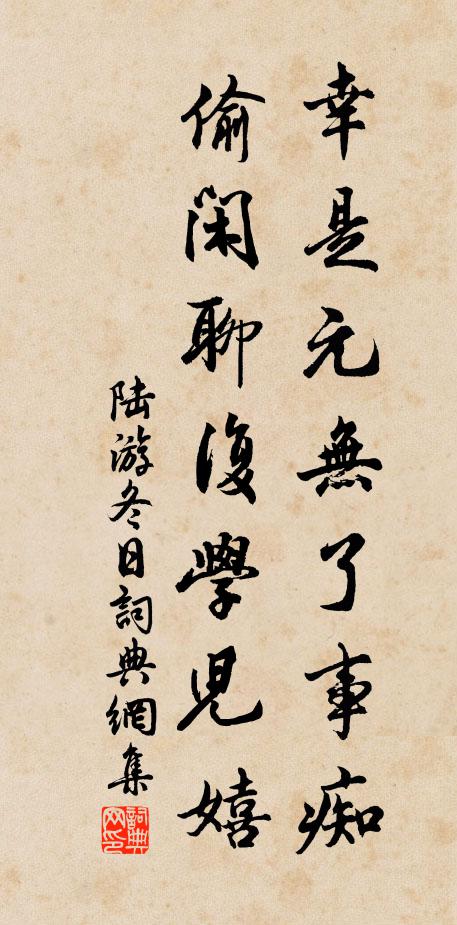 幸是元無了事痴
偷閑聊復學兒嬉
陆游冬日詞典網集
詞典网印